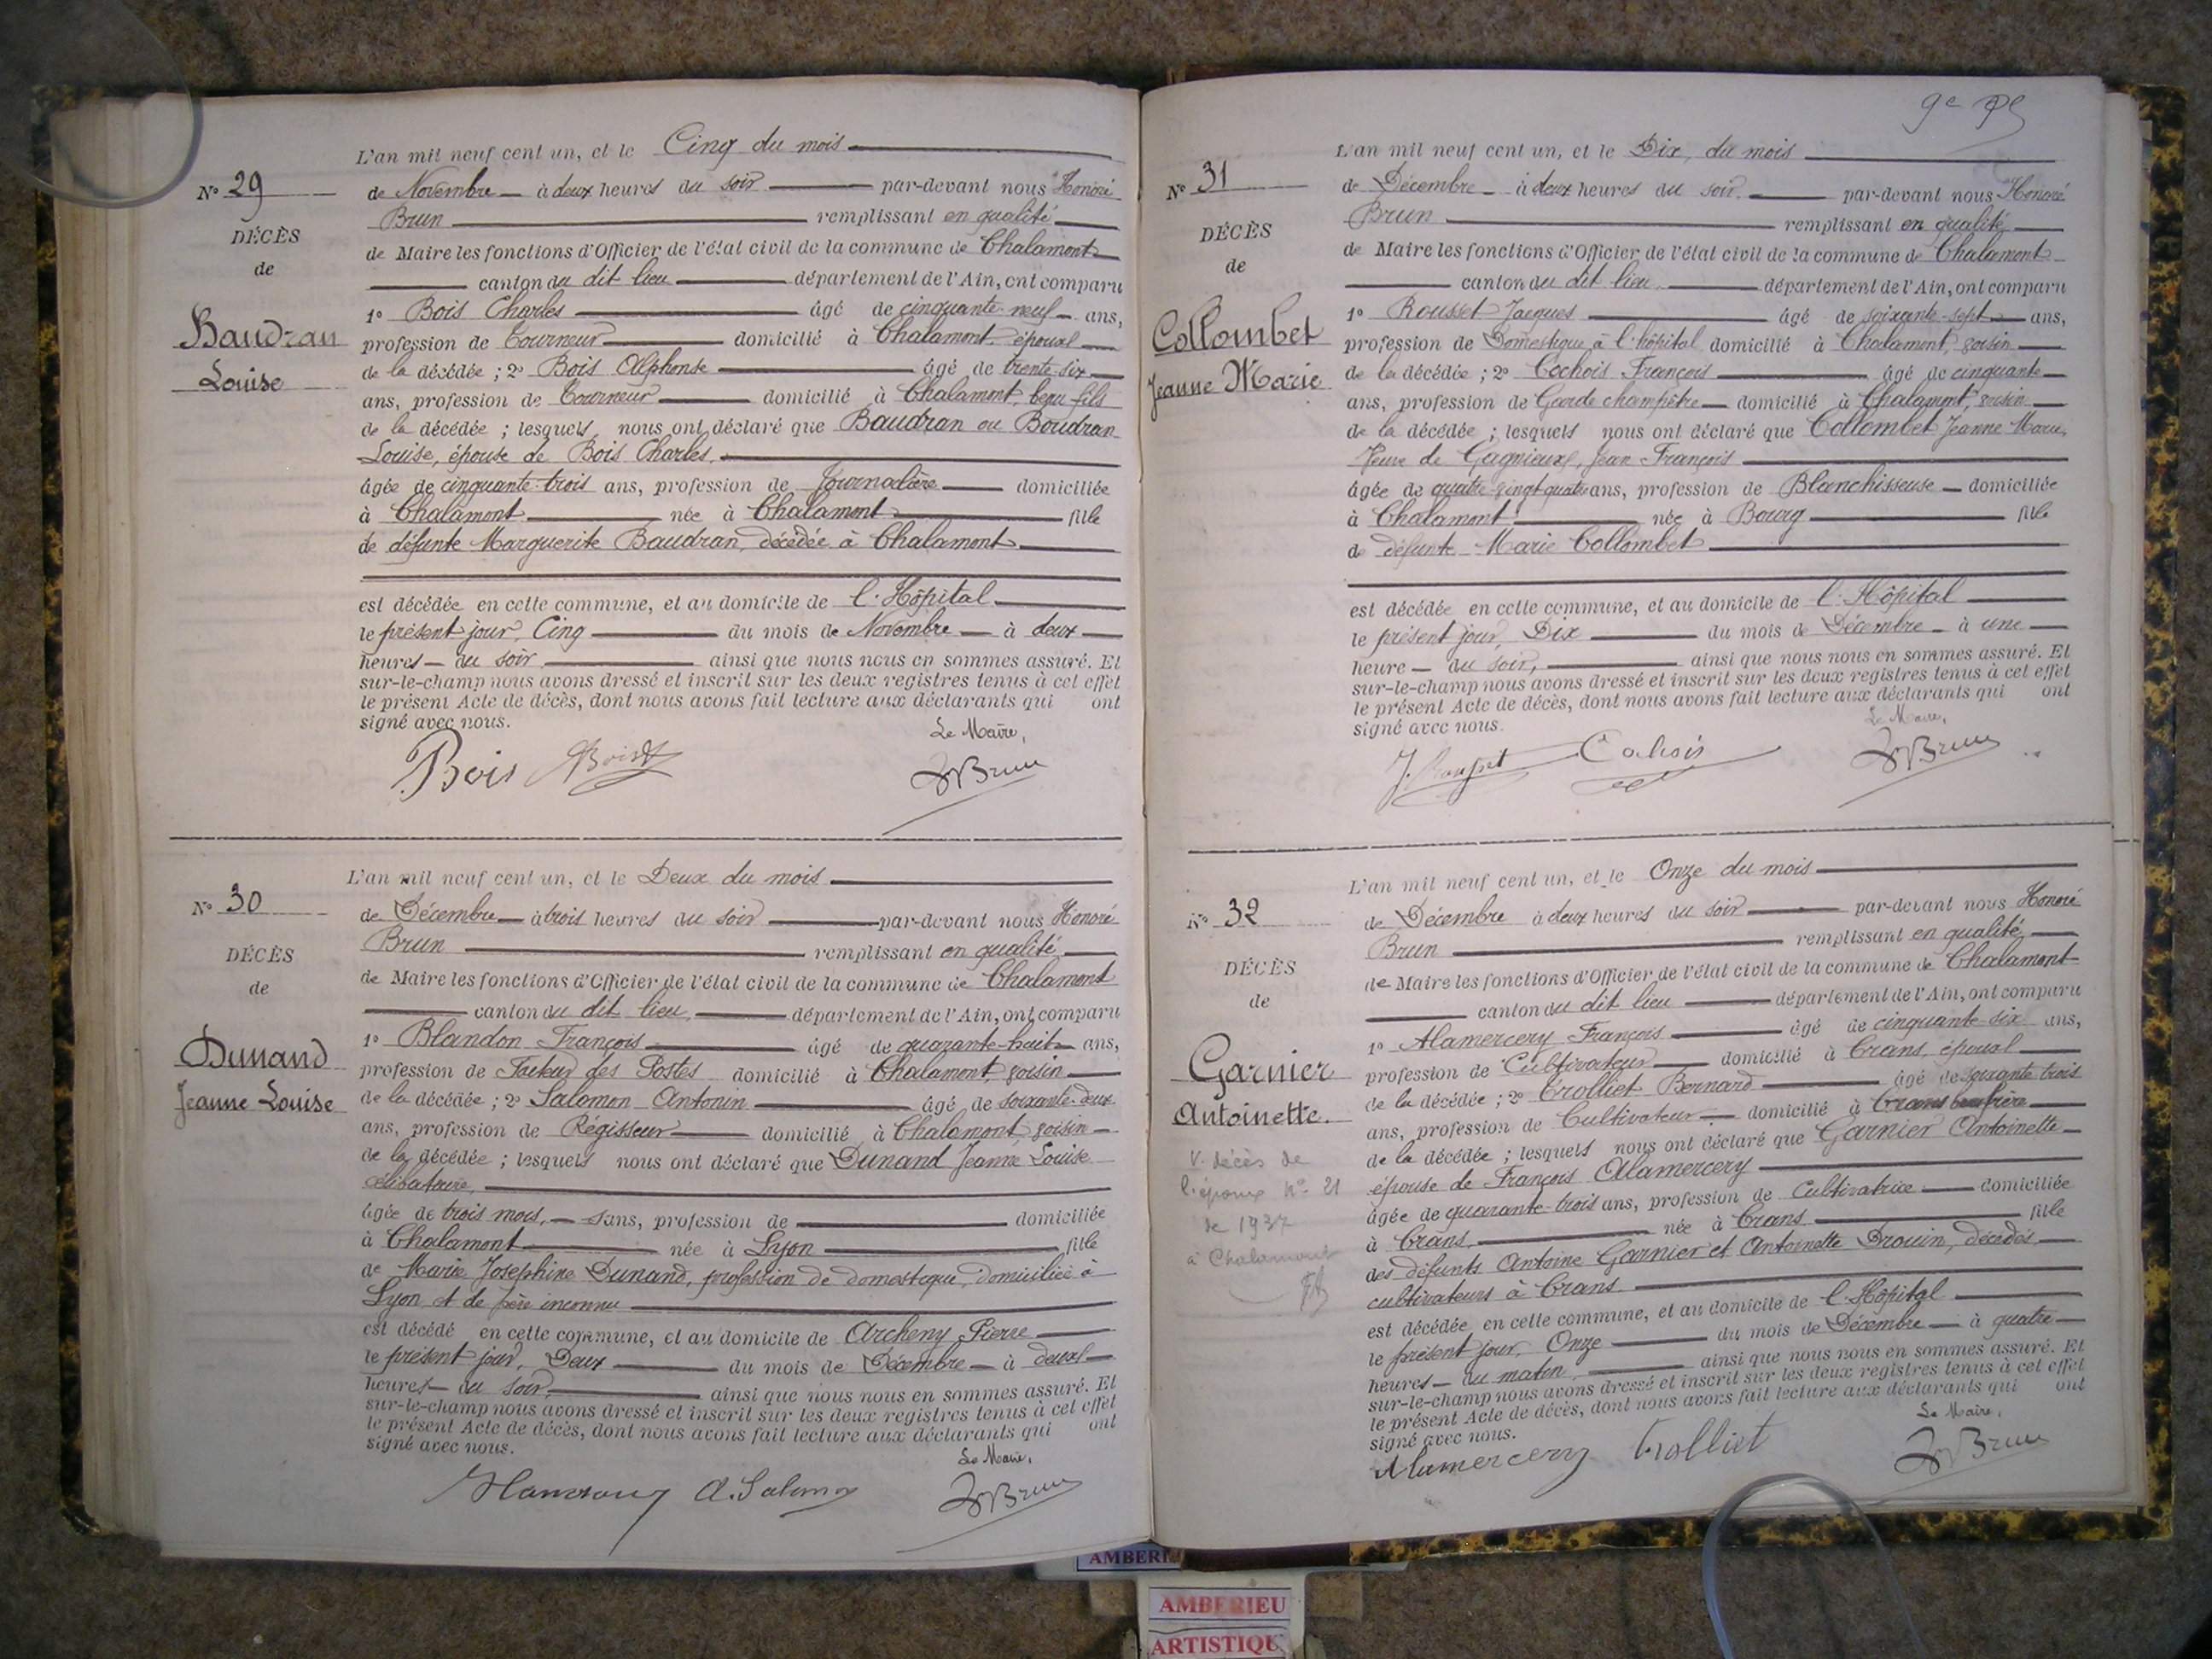 L'an mil neuf cent un, et le Cinq du mois
No 29
de Novembre à deux heures du soir par-devant nous Honoré
Brun remplissant en qualité
DÉCÈS
de Maire les fonctions d'Officier de l'état civil de la commune de Chalamont
de
canton du dit lieu département de l'Ain, ont comparu
1o Bois Charles âgé de cinquante-neuf ans,
Baudran
profession de Tourneur domicilié à Chalamont, époux
Louise
de la décédée ; 2o Bois Alphonse âgé de trente-six
ans, profession de Tourneur domicilié à Chalamont, beau-fils
de la décédée ; lesquels nous ont déclaré que Baudran ou Boudran
Louise, épouse de Bois Charles,
âgée de cinquante-trois ans, profession de Journalière domiciliée
à Chalamont née à Chalamont fille
de défunte Marguerite Baudran, décédée à Chalamont
est décédée en cette commune, et au domicile de l'Hôpital
le présent jour, Cinq du mois de Novembre à deux
heures du soir ainsi que nous nous en sommes assuré. Et
sur-le-champ nous avons dressé et inscrit sur les deux registres tenus à cet effet
le présent Acte de décès, dont nous avons fait lecture aux déclarants qui ont
signé avec nous.
Le Maire,
Bois Brun
L'an mil neuf cent un, et le Deux du mois
No 30
de Décembre à trois heures du soir par-devant nous Honoré
Brun remplissant en qualité
DÉCÈS
de Maire les fonctions d'Officier de l'état civil de la commune de Chalamont
de
canton du dit lieu, département de l'Ain, ont comparu
1o Blandon François âgé de quarante-huit ans,
Dunand
profession de Facteur des Postes domicilié à Chalamont, voisin
Jeanne Louise
de la décédée ; 2o Salomon Antonin âgé de soixante-deux
ans, profession de Régisseur domicilié à Chalamont, voisin
de la décédée ; lesquels nous ont déclaré que Dunand Jeanne Louise
célibataire,
âgée de trois mois, sans, profession de domiciliée
à Chalamont née à Lyon fille
de Marie Josephine Dunand, profession de domestique, domiciliée à
Lyon et de père inconnu
est décédé en cette commune, et au domicile de Archeny Pierre
le présent jour, Deux du mois de Décembre à deux
heures du soir, ainsi que nous nous en sommes assuré. Et
sur-le-champ nous avons dressé et inscrit sur les deux registres tenus à cet effet
le présent Acte de décès, dont nous avons fait lecture aux déclarants qui ont
signé avec nous.
Le Maire,
A. Salomon Brun
9e
L'an mil neuf cent un, et le Dix, du mois
No 31
de Décembre à deux heures du soir. par-devant nous Honoré
Brun remplissant en qualité
DÉCÈS
de Maire les fonctions d'Officier de l'état civil de la commune de Chalamont
de
canton du dit lieu département de l'Ain, ont comparu
1o Rousset Jacques âgé de soixante-sept ans,
Collombet
profession de Domestique à l'hôpital domicilié à Chalamont, voisin
Jeanne Marie
de la décédée ; 2o Cochois François âgé de cinquante
ans, profession de Garde champêtre domicilié à Chalamont, voisin
de la décédée ; lesquels nous ont déclaré que Collombet Jeanne Marie,
Veuve de Gagnieux, Jean François
âgée de quatre-vingt-quatre ans, profession de Blanchisseuse domiciliée
à Chalamont née à Bourg fille
de défunte Marie Collombet
est décédée en cette commune, et au domicile de l'Hôpital
le présent jour, Dix du mois de Décembre à une
heure du soir, ainsi que nous nous en sommes assuré. Et
sur-le-champ nous avons dressé et inscrit sur les deux registres tenus à cet effet
le présent Acte de décès, dont nous avons fait lecture aux déclarants qui ont
signé avec nous.
Le Maire,
J. Rousset Cochois Brun
L'an mil neuf cent un, et le Onze du mois
No 32
de Décembre à deux heures du soir par-devant nous Honoré
Brun remplissant en qualité
DÉCÈS
de Maire les fonctions d'Officier de l'état civil de la commune de Chalamont
de
canton du dit lieu département de l'Ain, ont comparu
1o Alamercery François âgé de cinquante-six ans,
Garnier
profession de Cultivateur domicilié à Crans, époux
de la décédée ; 2o Trolliet Bernard âgé de soixante-trois
Antoinette.
ans, profession de Cultivateur domicilié à Crans beau-frère
de la décédée ; lesquels nous ont déclaré que Garnier Antoinette
V. décès de
l'époux No 21
de 1937
à Chalamont
épouse de François Alamercery
âgée de quarante-trois ans, profession de Cultivatrice domiciliée
à Crans née à Crans fille
des défunts Antoine Garnier et Antoinette Drouin, décédés
cultivateurs à Crans
est décédée en cette commune, et au domicile de l'Hôpital
le présent jour, Onze du mois de Décembre à quatre
heures du matin, ainsi que nous nous en sommes assuré. Et
sur-le-champ nous avons dressé et inscrit sur les deux registres tenus à cet effet
le présent Acte de décès, dont nous avons fait lecture aux déclarants qui ont
signé avec nous.
Le Maire,
Alamercery Trolliet Brun
AMBERIEU
ARTISTIQU